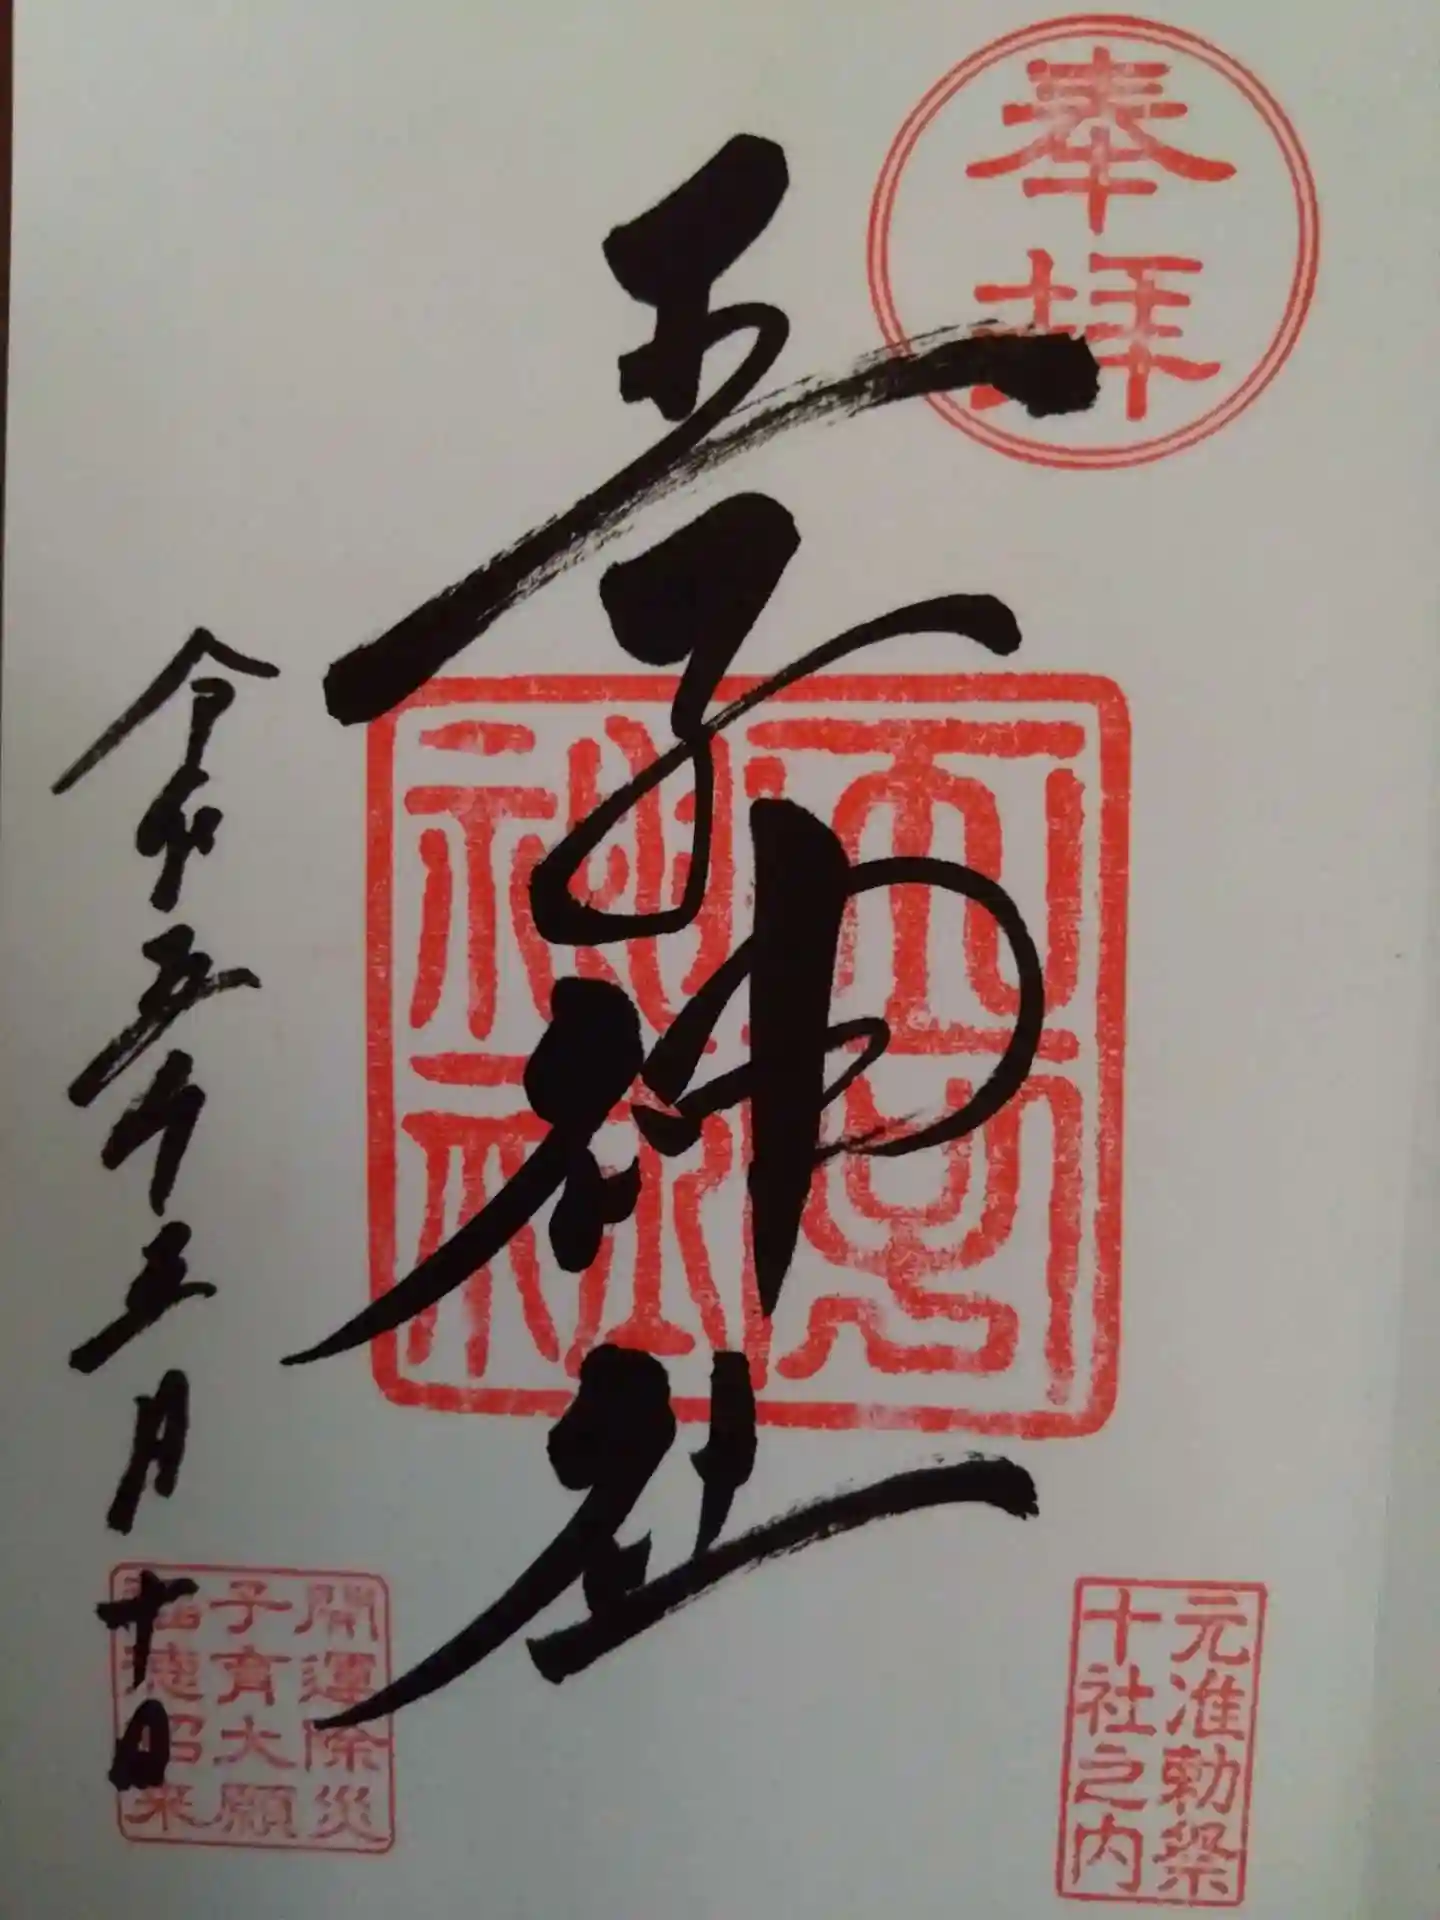 奉拝
王子神社
神社
元准勅祭
十社之内
令和五年五月十日
開運除災
子育大願
福徳招来